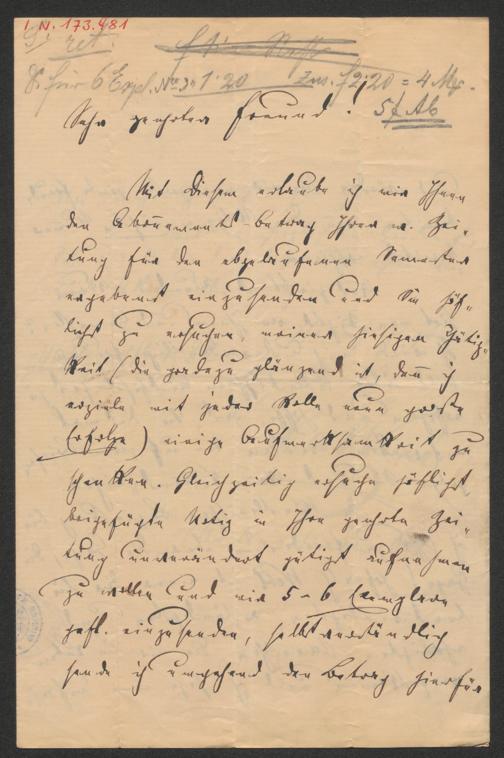 I. N. 173.481
ret.
für 6 Expl. No 3 1·20 Zus. f 9·20 = 4 Mz.
5 f Ab
Sehr geehrter Freund!
Mit Diesem erlaube ich mir Ihnen
den Abonnements-Betrag Ihrer w. Zei-
tung für den abgelaufenen Semester
ergebenst einzusenden und Sie höf-
lichst zu ersuchen, meiner hiesigen Thätig-
keit (die geradezu glänzend ist, denn ich
erziele mit jeder Rolle neue große
Erfolge) einige Aufmerksamkeit zu
schenken. Gleichzeitig ersuche höflichst
beigefügte Notiz in Ihre geehrte Zei-
tung unverändert gütigst aufnehmen
zu wollen und mir 5-6 Exemplare
gefl. einzusenden, selbstverständlich
sende ich umgehend den Betrag hierfür